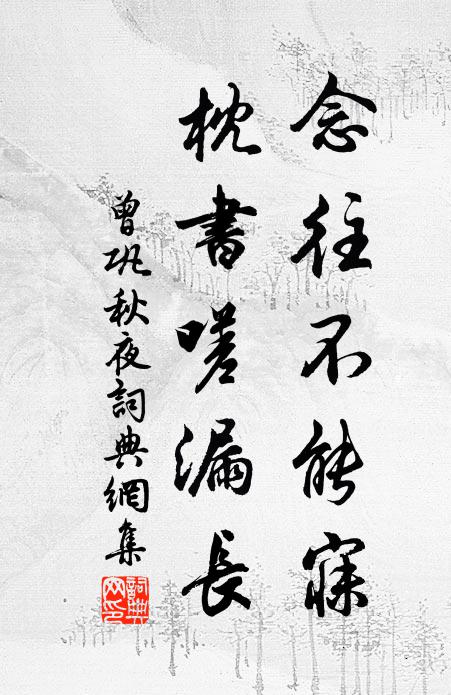 念往不能寐
枕書嗟漏長
曾巩秋夜詞典網集
詞典网印